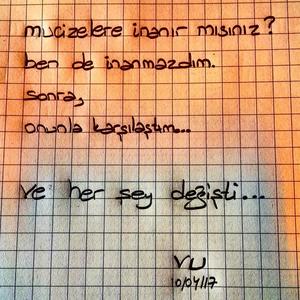 mucizelere inanır mısınız?
ben de inanmazdım.
sonra,
onunla karşılaştım...
ve her şey değişti...
VU
10/04/17